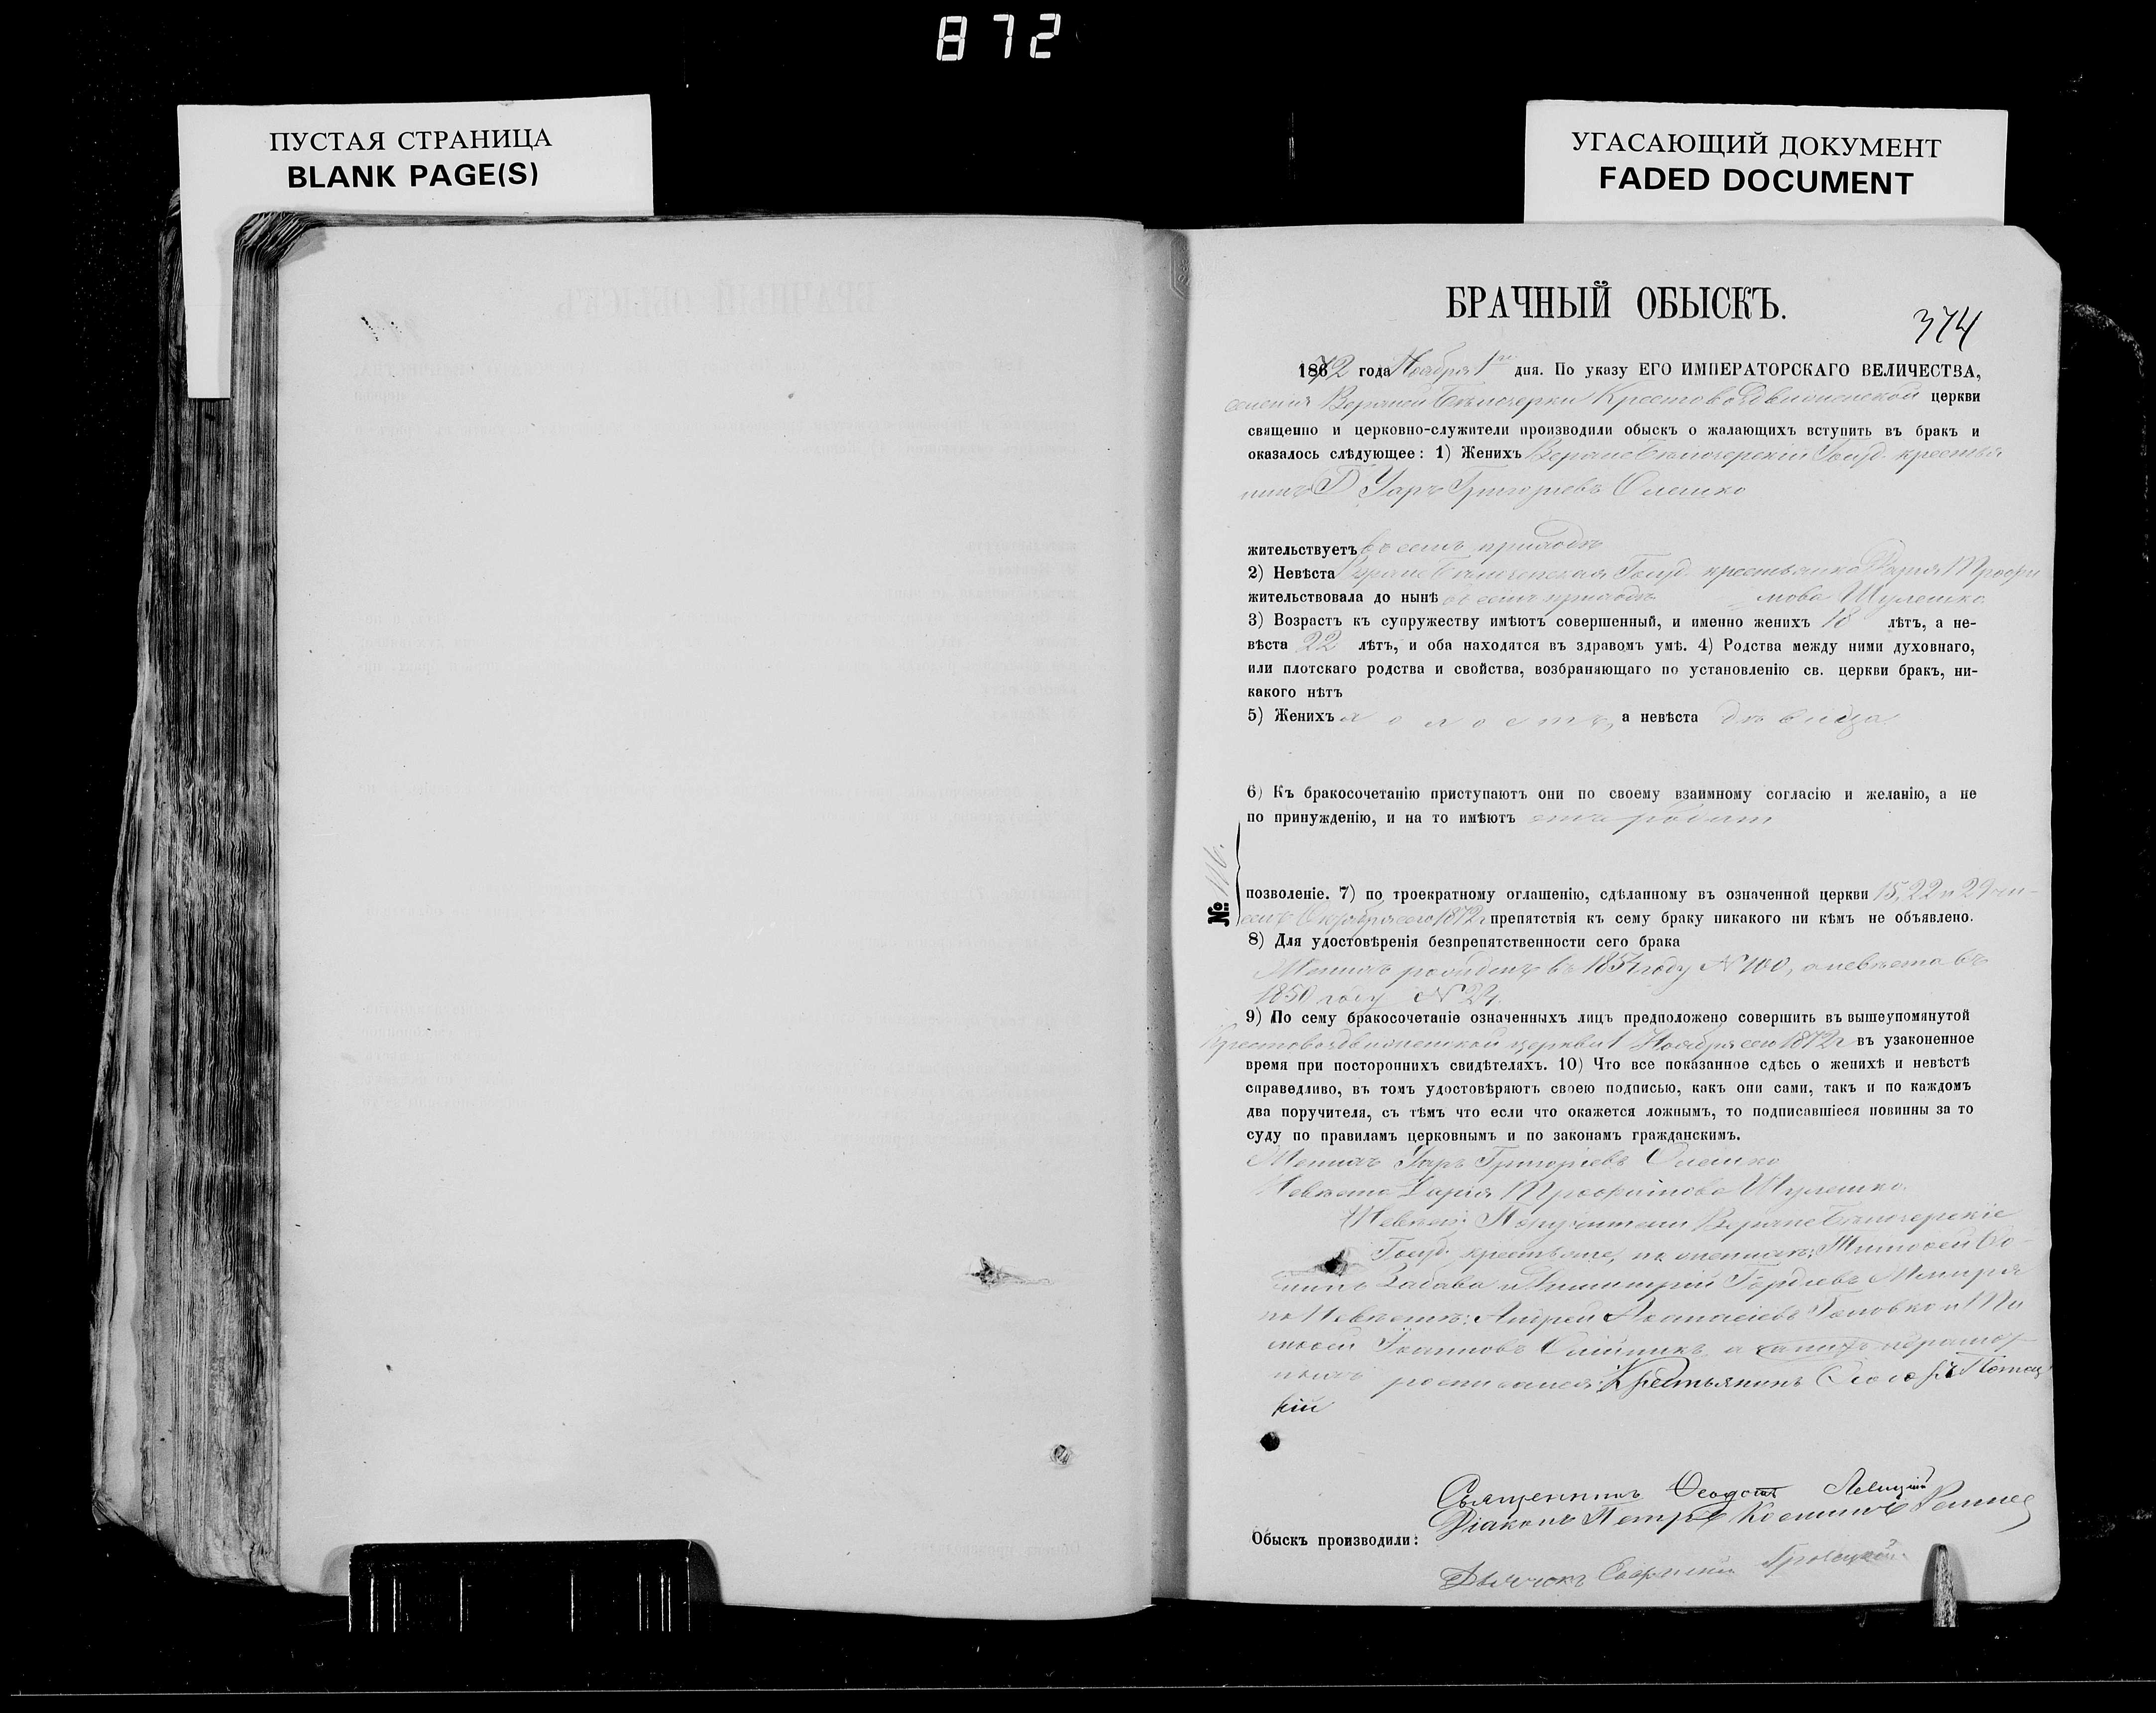 872
ПУСТАЯ СТРАНИЦА
BLANK PAGE(S)
УГАСАЮЩИЙ ДОКУМЕНТ
FADED DOCUMENT
БРАЧНЫЙ ОБЫСКЪ.
374
1872 года Ноября 1го дня. По указу ЕГО ИМПЕРАТОРСКАГО ВЕЛИЧЕСТВА,
селенія Верхней Бѣлозерки Крестовоздвиженской церкви
священно и церковно-служители производили обыскъ о жалающихъ вступить въ бракъ и
оказалось слѣдующее: 1) Женихъ Верхне Бѣлозерскій Госуд. крестья
нинъ Уаръ Григорьевъ Олешко
жительствуетъ въ семъ приходѣ
2) Невѣста Верхне Бѣлозерская Госуд. крестьянка Дарія Трофи
жительствовала до нынѣ въ семъ приходѣ = мова Шулешко
3) Возрастъ къ супружеству имѣютъ совершенный, и именно женихъ 18 лѣтъ, а не-
вѣста 22 лѣтъ, и оба находятся въ здравомъ умѣ. 4) Родства между ними духовнаго,
или плотскаго родства и свойства, возбраняющаго по установленію св. церкви бракъ, ни-
какого нѣтъ
5) Женихъ холостъ, а невѣста дѣвица
6) Къ бракосочетанію приступаютъ они по своему взаимному согласію и желанію, а не
по принужденію, и на то имѣютъ
№ 116.
позволеніе. 7) по троекратному оглашенію, сдѣланному въ означенной церкви 15, 22 и 29 чи-
селъ Октября сего 1872 г. препятствія къ сему браку никакого ни кѣмъ не объявлено.
8) Для удостовѣренія безпрепятственности сего брака
Женихъ рожденъ въ 1854 году № 100, а невѣста въ
1850 году № 24.
9) По сему бракосочетаніе означенныхъ лицъ предположено совершить въ вышеупомянутой
Крестовоздвиженской церкви 1 Ноября сего 1872 г. въ узаконенное
время при постороннихъ свидѣтеляхъ. 10) Что все показанное сдѣсь о женихѣ и невѣстѣ
справедливо, въ томъ удостовѣряютъ своею подписью, какъ они сами, такъ и по каждомъ
два поручителя, съ тѣмъ что если что окажется ложнымъ, то подписавшіеся повинны за то
суду по правиламъ церковнымъ и по законамъ гражданскимъ.
Женихъ Уаръ Григоріевъ Олешко
Невѣста Дарія Трофимова Шулешко.
Поручители Верхне Бѣлозерскіе
Госуд. крестьяне, по женихѣ: Тимофей
и Димитрій Гордіевъ
по Невѣстѣ: Андрей Афанасіевъ Головко и Ти
мофей Іоанновъ Олійникъ, а
Крестьянинъ
кій
Священникъ Феодотъ Левицкій
Діаконъ Петръ
Обыскъ производили:
Дьячокъ